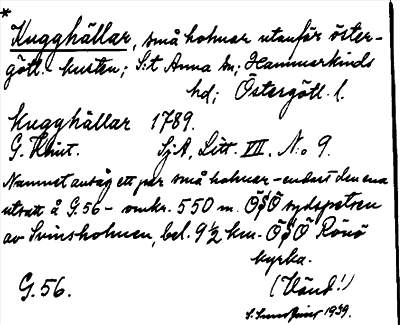 *
Kugghällar, små holmar utanför öster-
götl. kusten; S:t Anna sn; Hammarkinds
hd; Östergötl. l.
Kugghällar 1789.
G. Klint. SjA, Litt. VII, N:o 9.
Namnet antag ett par små holmar - endast den ena
utsatt å G.56 - omkr. 550 m. ÖSÖ sydspetsen
av Svinsholmen, bel. 9 1/2 km. ÖSÖ Rönö
kyrka.
G.56. (Vänd!)
1939.